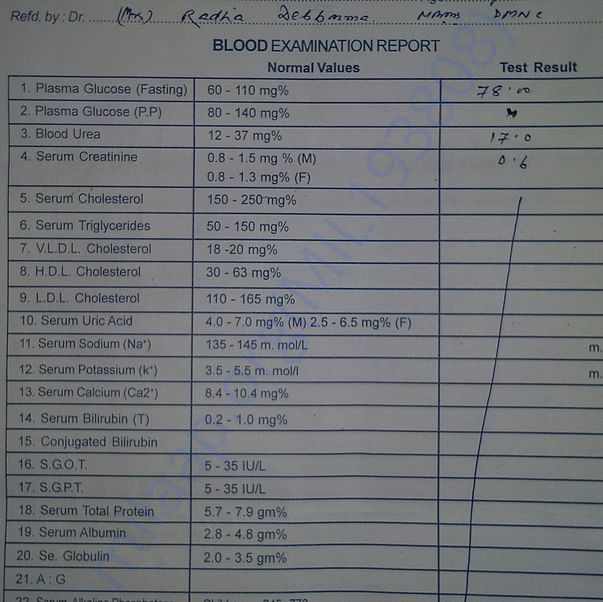 Refd. by : Dr. (Mrs) Radha Debbarma MBBS DMNC
BLOOD EXAMINATION REPORT
Normal Values Test Result
1. Plasma Glucose (Fasting) 60 - 110 mg% 78.00
2. Plasma Glucose (P.P) 80 - 140 mg%
3. Blood Urea 12 - 37 mg% 17.0
4. Serum Creatinine 0.8 - 1.5 mg % (M) 0.6
0.8 - 1.3 mg% (F)
5. Serum Cholesterol 150 - 250 mg%
6. Serum Triglycerides 50 - 150 mg%
7. V.L.D.L. Cholesterol 18 -20 mg%
8. H.D.L. Cholesterol 30 - 63 mg%
9. L.D.L. Cholesterol 110 - 165 mg%
10. Serum Uric Acid 4.0 - 7.0 mg% (M) 2.5 - 6.5 mg% (F)
11. Serum Sodium (Na⁺) 135 - 145 m. mol/L m.
12. Serum Potassium (k⁺) 3.5 - 5.5 m. mol/l m.
13. Serum Calcium (Ca2⁺) 8.4 - 10.4 mg%
14. Serum Bilirubin (T) 0.2 - 1.0 mg%
15. Conjugated Bilirubin
16. S.G.O.T. 5 - 35 IU/L
17. S.G.P.T. 5 - 35 IU/L
18. Serum Total Protein 5.7 - 7.9 gm%
19. Serum Albumin 2.8 - 4.8 gm%
20. Se. Globulin 2.0 - 3.5 gm%
21. A : G